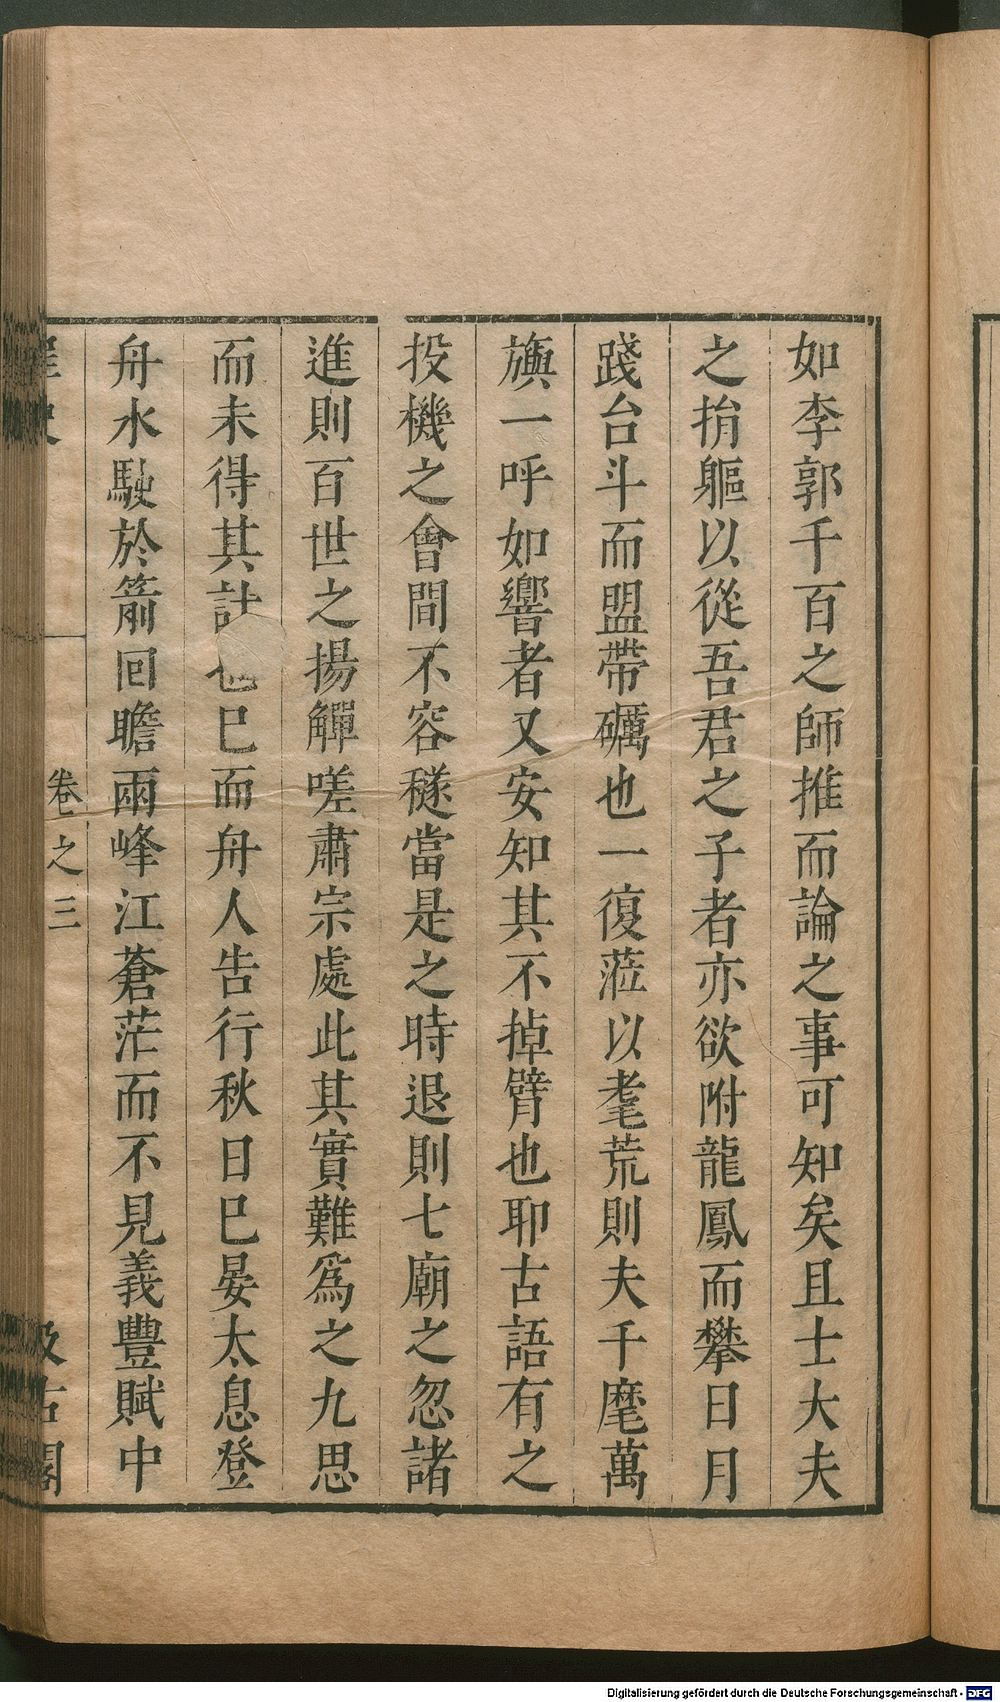 如李郭千百之師推而論之事可知矣且士大夫
之捐軀以從吾君之子者亦欲附龍鳳而攀日月
踐台斗而盟帶礪也一復蒞以耄荒則夫千麾萬
旟一呼如響者又安知其不掉臂也耶古語有之
投機之會間不容穟當是之時退則七廟之忽諸
進則百世之揚觶嗟肅宗處此其實難爲之九思
而未得其計也巳而舟人告行秋日巳晏太息登
舟水駛於箭回瞻兩峰江蒼茫而不見義豐賦中
卷之三
古閣
Digitalisierung gefördert durch die Deutsche Forschungsgemeinschaft - DFG